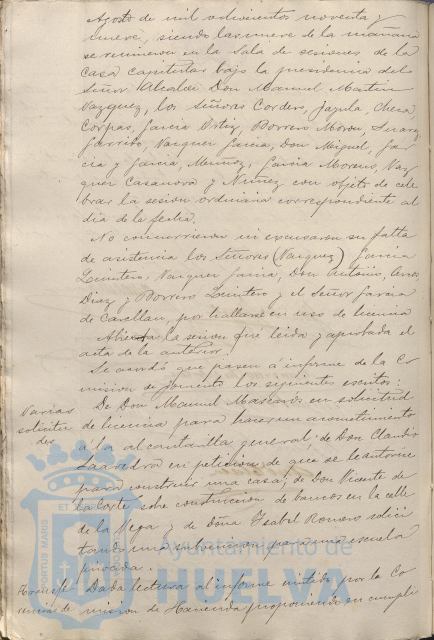 Agosto de mil ochocientos noventa y
nueve, siendo las nueve de la mañana
se reunieron en la Sala de sesiones de la
Casa Capitular bajo la presidencia del
Señor Alcalde Don Manuel Martin
Vazquez, los Señores Cordero, Jazula, Checa,
Corpas, Garcia Ortiz, Borrero Moron,
Garrido, Vazquez Garcia, Don Miguel, Gar
cia y Garcia, Muñoz, Garcia Moreno, Vaz
quez Casanova y Nuñez con objeto de cele
brar la sesion ordinaria correspondiente al
dia de la fecha.
No concurrieron ni excusaron su falta
de asistencia los Señores (Vazquez) Garcia
Quintero, Vazquez Garcia, Don Antonio,
Diaz y Borrero Quintero y el Señor Garcia
de Castellan, por hallarse en uso de licencia
Abierta la sesion fué leida y aprobada el
acta de la anterior.
Se acordó que pasen a informe de la Co
mision de fomento los siguientes escritos:
Varias
solicitu
des
De Don Manuel Mascarós en solicitud
de licencia para hacer un acometimiento
á la alcantarilla general; de Don Claudio
Saavedra en peticion de que se le autorice
para construir una casa; de Don Vicente de
la Corte sobre construccion de bancos en la calle
de la Vega y de Doña Isabel Romero solici
tando una subvencion para una escuela
privada.
Dada lectura al informe emitido por la Co
mision de Hacienda proponiendo en cumpli
ET
PORTUS MARIS
Ayuntamiento de
HUELVA